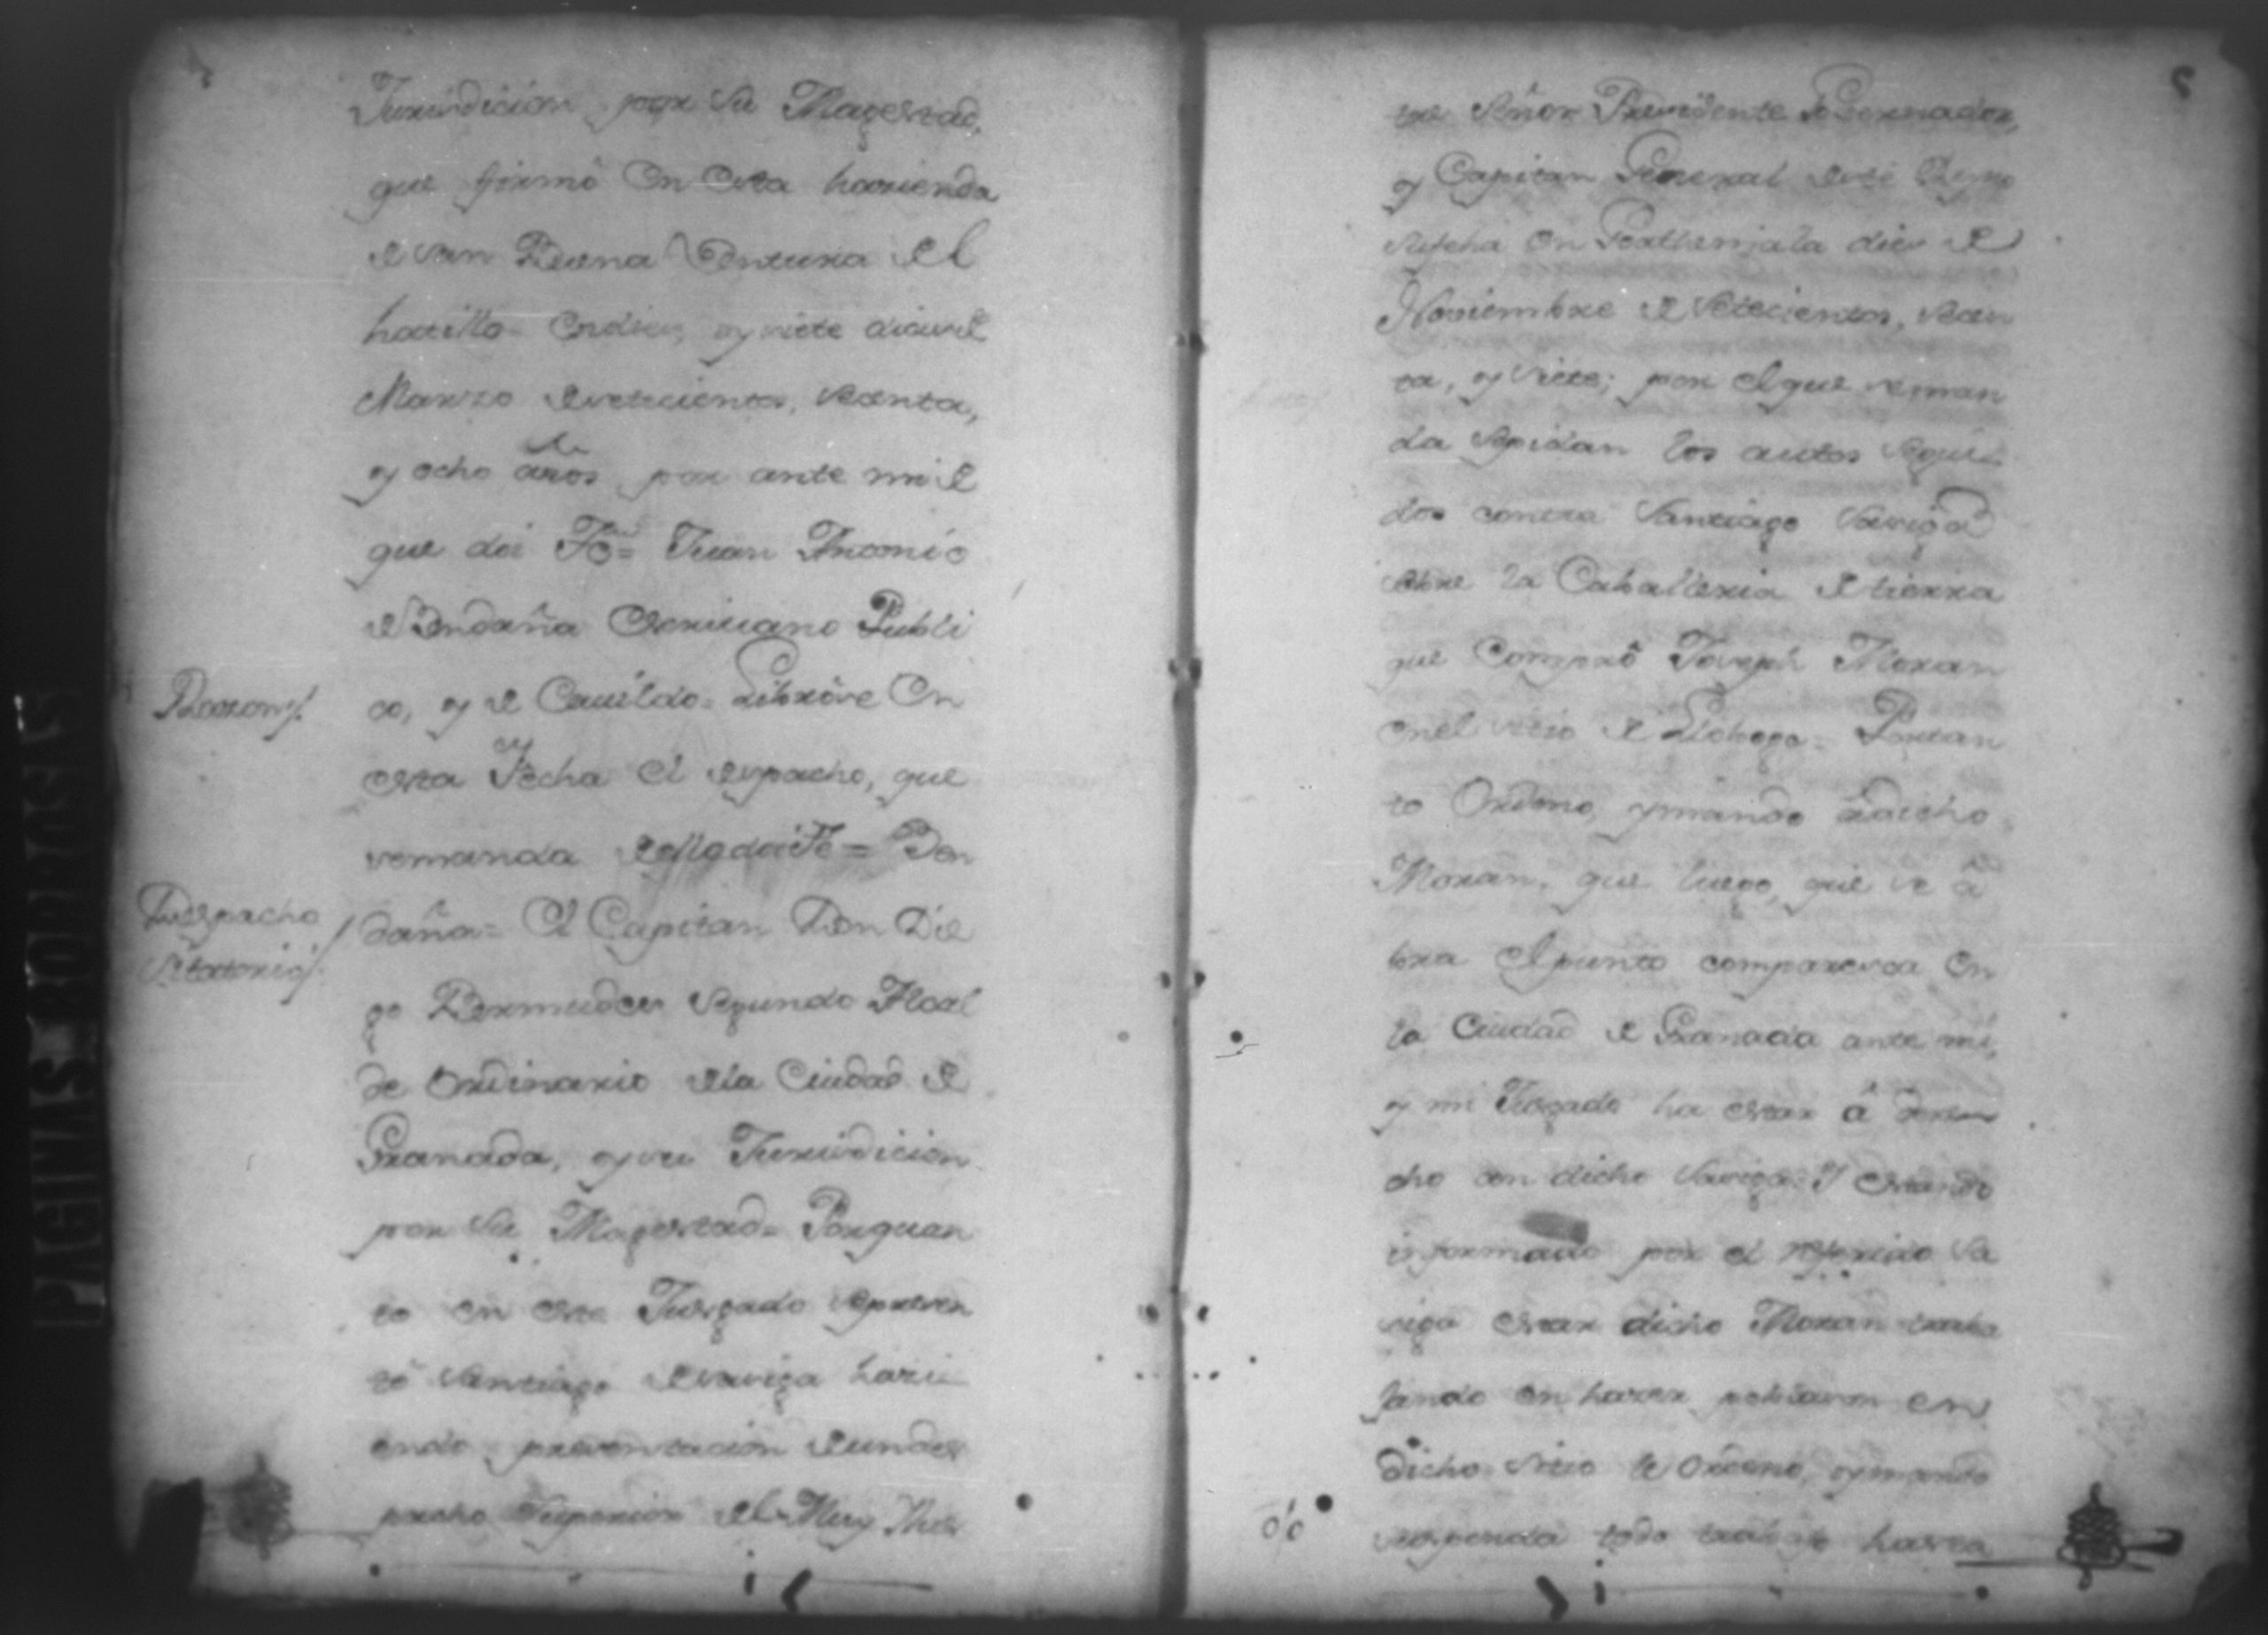 Jurisdicion por Su Magestad,
que firmô en esta hacienda
de san Buena Ventura del
hatillo= en dies, y siete dias de
Marzo de setecientos, secenta,
y ocho años por ante mi de
que doi Fê= Juan Antonio
de Bendaña Escriuano Publi
co, y de Cauildo= Librôse en
esta Fecha el despacho, que
se manda de ello doi Fê= Ben
daña= El Capitan Don Die
go Bermudes Segundo Alcal
de Ordinario de la Ciudad de
Granada, y su Jurisdicion
por Su Magestad= Por quan
to en este Jusgado se presen
tô Santiago de Saviga hazi
endo presentacion de un des
pacho Superior del Muy Ilus
Razon
Despacho
tre Señor Presidente Governador,
y Capitan General de este Reyno
su fecha en Goathemala dies de
Noviembre de Setecientos, secen
ta, y siete; por el que se man
da se pidan los autos segui
dos contra Santiago Saviga
sobre la Caballeria de tierra
que comprô Joseph Moran
en el sitio de Por tan
to Ordeno, y mando a dicho
Moran, que luego, que se â
bra el punto comparesca en
la Ciudad de Granada ante mi,
y mi Jusgado ha estar â dere
cho con dicho Saviga: Y estando
informado por el referido Sa
viga estar dicho Moran traba
jando en hacer en
dicho sitio le Ordeno, y mando
suspenda todo trabajo hasta